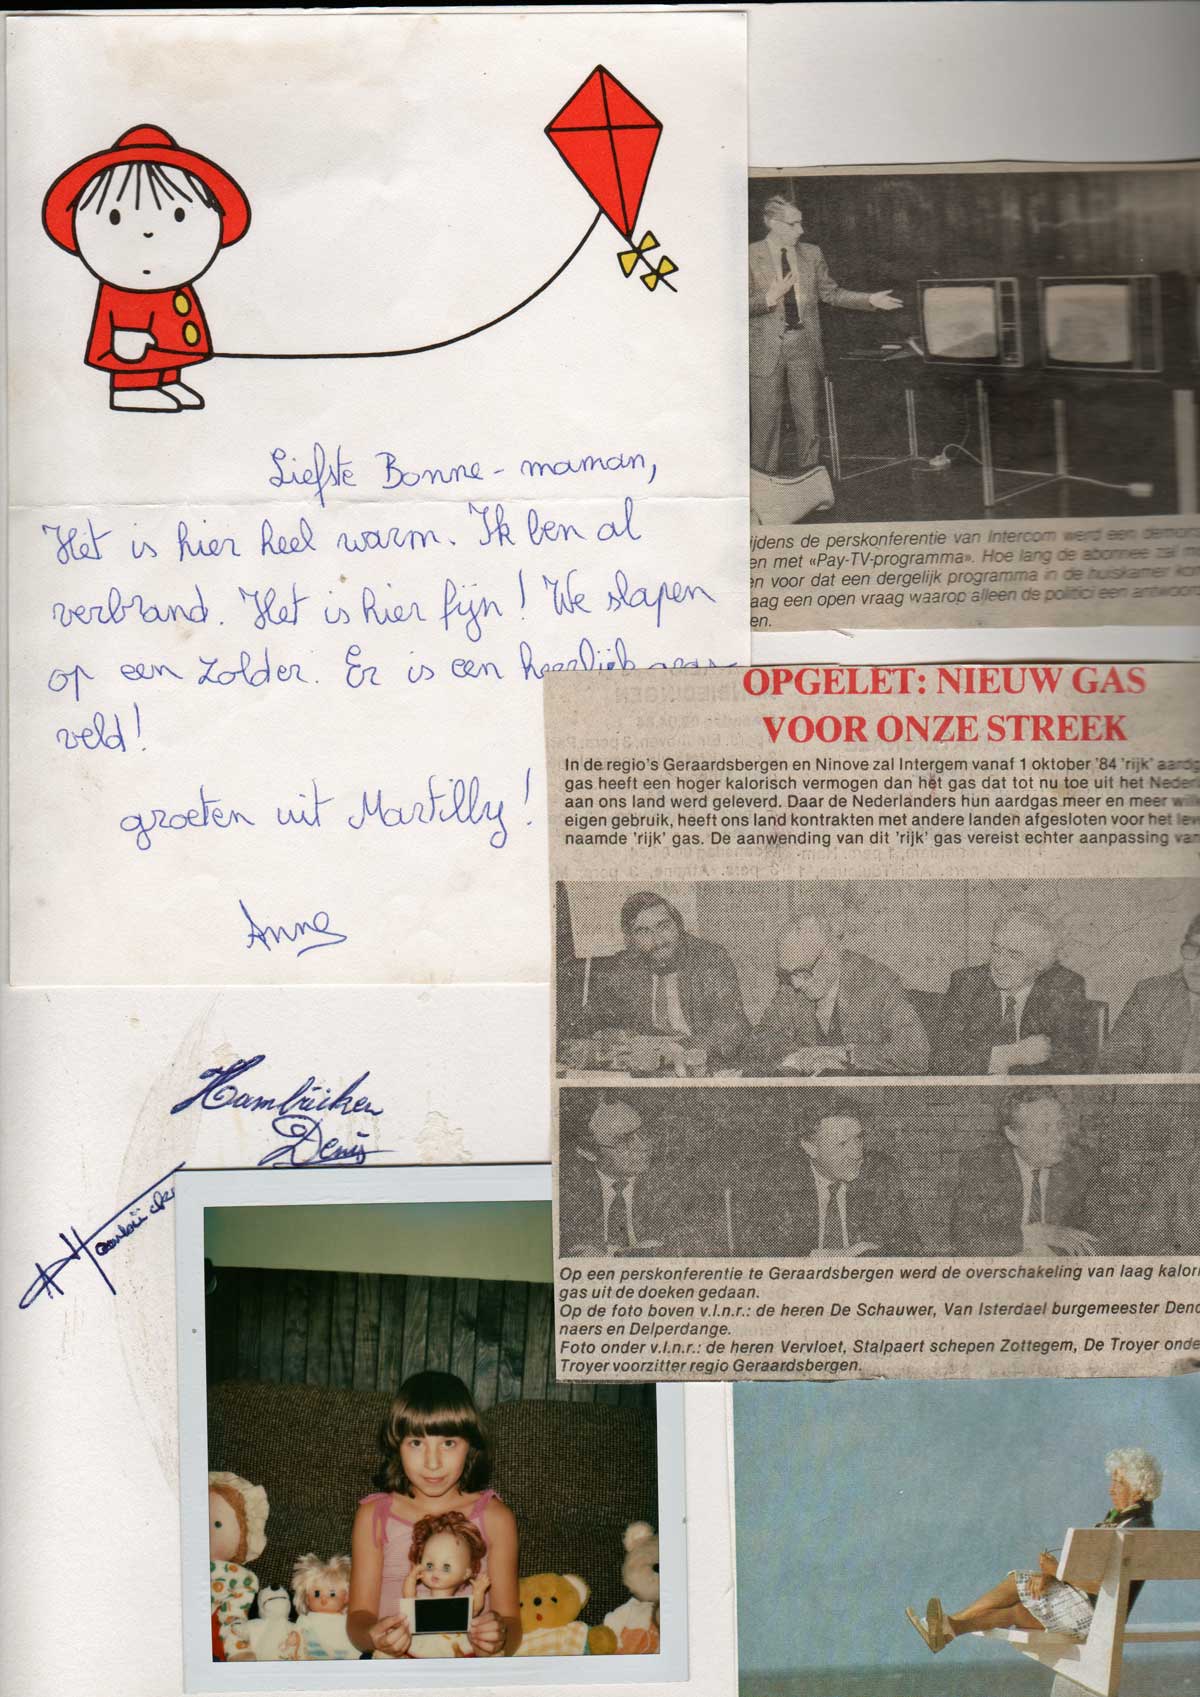 Liefste Bonne-maman,
Het is hier heel warm. Ik ben al
verbrand. Het is hier fijn! We slapen
op een zolder. Er is een heerlijk gras-
veld!
groeten uit Martilly!
Anne
ijdens de perskonferentie van Intercom werd een demon
en met «Pay-TV-programma». Hoe lang de abonnee zal m
en voor dat een dergelijk programma in de huiskamer kom
aag een open vraag waarop alleen de politici een antwoord
en.
OPGELET: NIEUW GAS
VOOR ONZE STREEK
In de regio's Geraardsbergen en Ninove zal Intergem vanaf 1 oktober '84 'rijk' aardg
gas heeft een hoger kalorisch vermogen dan het gas dat tot nu toe uit het Nederl
aan ons land werd geleverd. Daar de Nederlanders hun aardgas meer en meer wil
eigen gebruik, heeft ons land kontrakten met andere landen afgesloten voor het lev
naamde 'rijk' gas. De aanwending van dit 'rijk' gas vereist echter aanpassing van
Op een perskonferentie te Geraardsbergen werd de overschakeling van laag kalori
gas uit de doeken gedaan.
Op de foto boven v.l.n.r.: de heren De Schauwer, Van Isterdael burgemeester Deno
naers en Delperdange.
Foto onder v.l.n.r.: de heren Vervloet, Stalpaert schepen Zottegem, De Troyer onde
Troyer voorzitter regio Geraardsbergen.
Hambücken
Denis